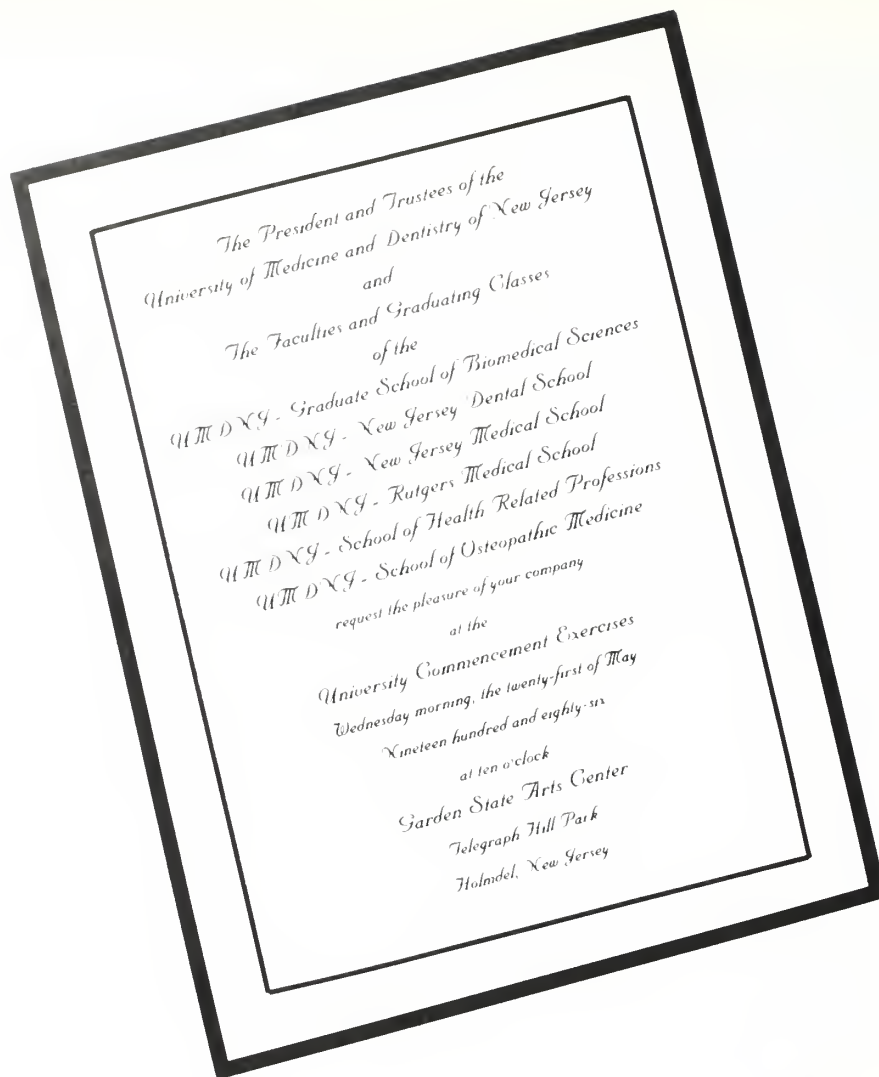 The President and Trustees of the
University of Medicine and Dentistry of New Jersey
and
The Faculties and Graduating Classes
of the
UMDNJ - Graduate School of Biomedical Sciences
UMDNJ - New Jersey Dental School
UMDNJ - New Jersey Medical School
UMDNJ - Rutgers Medical School
UMDNJ - School of Health Related Professions
UMDNJ - School of Osteopathic Medicine
request the pleasure of your company
at the
University Commencement Exercises
Wednesday morning, the twenty-first of May
Nineteen hundred and eighty-six
at ten o'clock
Garden State Arts Center
Telegraph Hill Park
Holmdel, New Jersey